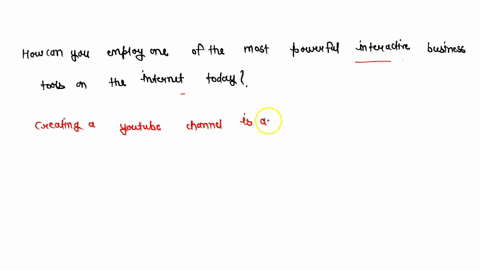 How can you employ one of the most powerful interactive business
tools on the internet today?.
Creating a youtube channel is a